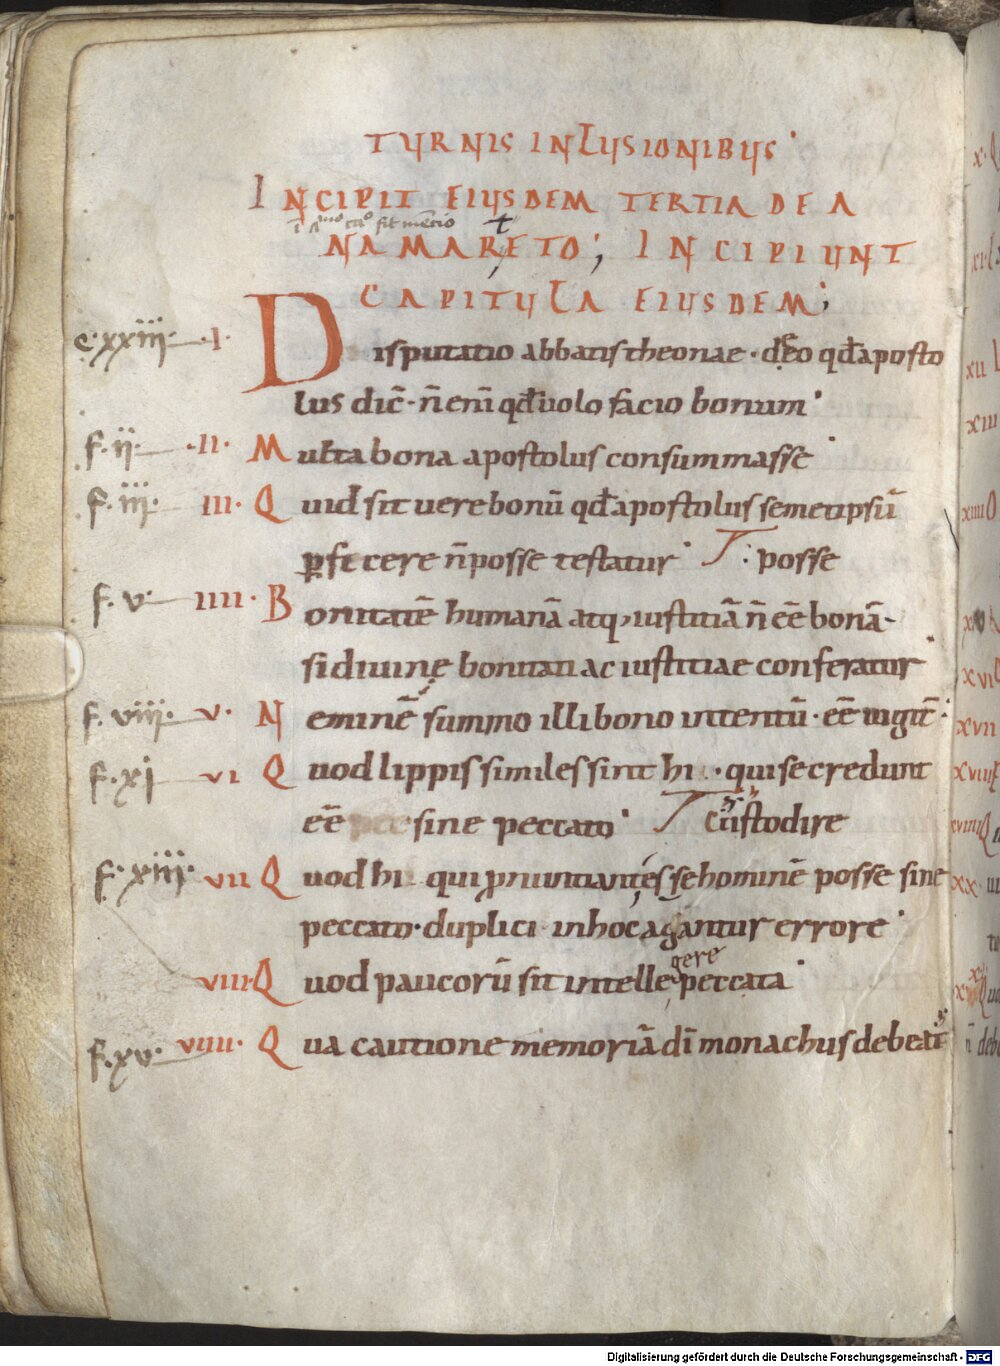 TURNIS INLUSIONIBUS
INCIPIT EIUSDEM TERTIA DE A
NAMARETO; INCIPIUNT
CAPITULA EIUSDEM;
c·xxiii· ·I· Disputatio abbatis theonae · deeo qđ aposto
lus dic̄· n̄ eni qđ uolo facio bonum
f·ii· ·II· Multa bona apostolus consummasse
f·iii· III· Quid sit uere bonū qđ apostolus semetipsū
ꝑficere n̄ posse testatur · posse
f·v· IIII· Bonitatē humanā atq; iustitiā n̄ eē bonā·
si diuinę bonitati ac iustitiae conferatur
f·viii· V· Neminē summo illi bono intentū · eē iugit̄
f·xi VI Quod lippis similes sint hi · qui se credunt
eē sine peccato custodire
f·xiii· VII Quod hi qui pnuntiantes se hominē posse sine
peccato · duplici in hoc agantur errore
VIII· Quod paucorū sit intellegere peccata
f·xv· VIIII· Qua cautione memoriā dī monachus debeat
Digitalisierung gefördert durch die Deutsche Forschungsgemeinschaft - DFG